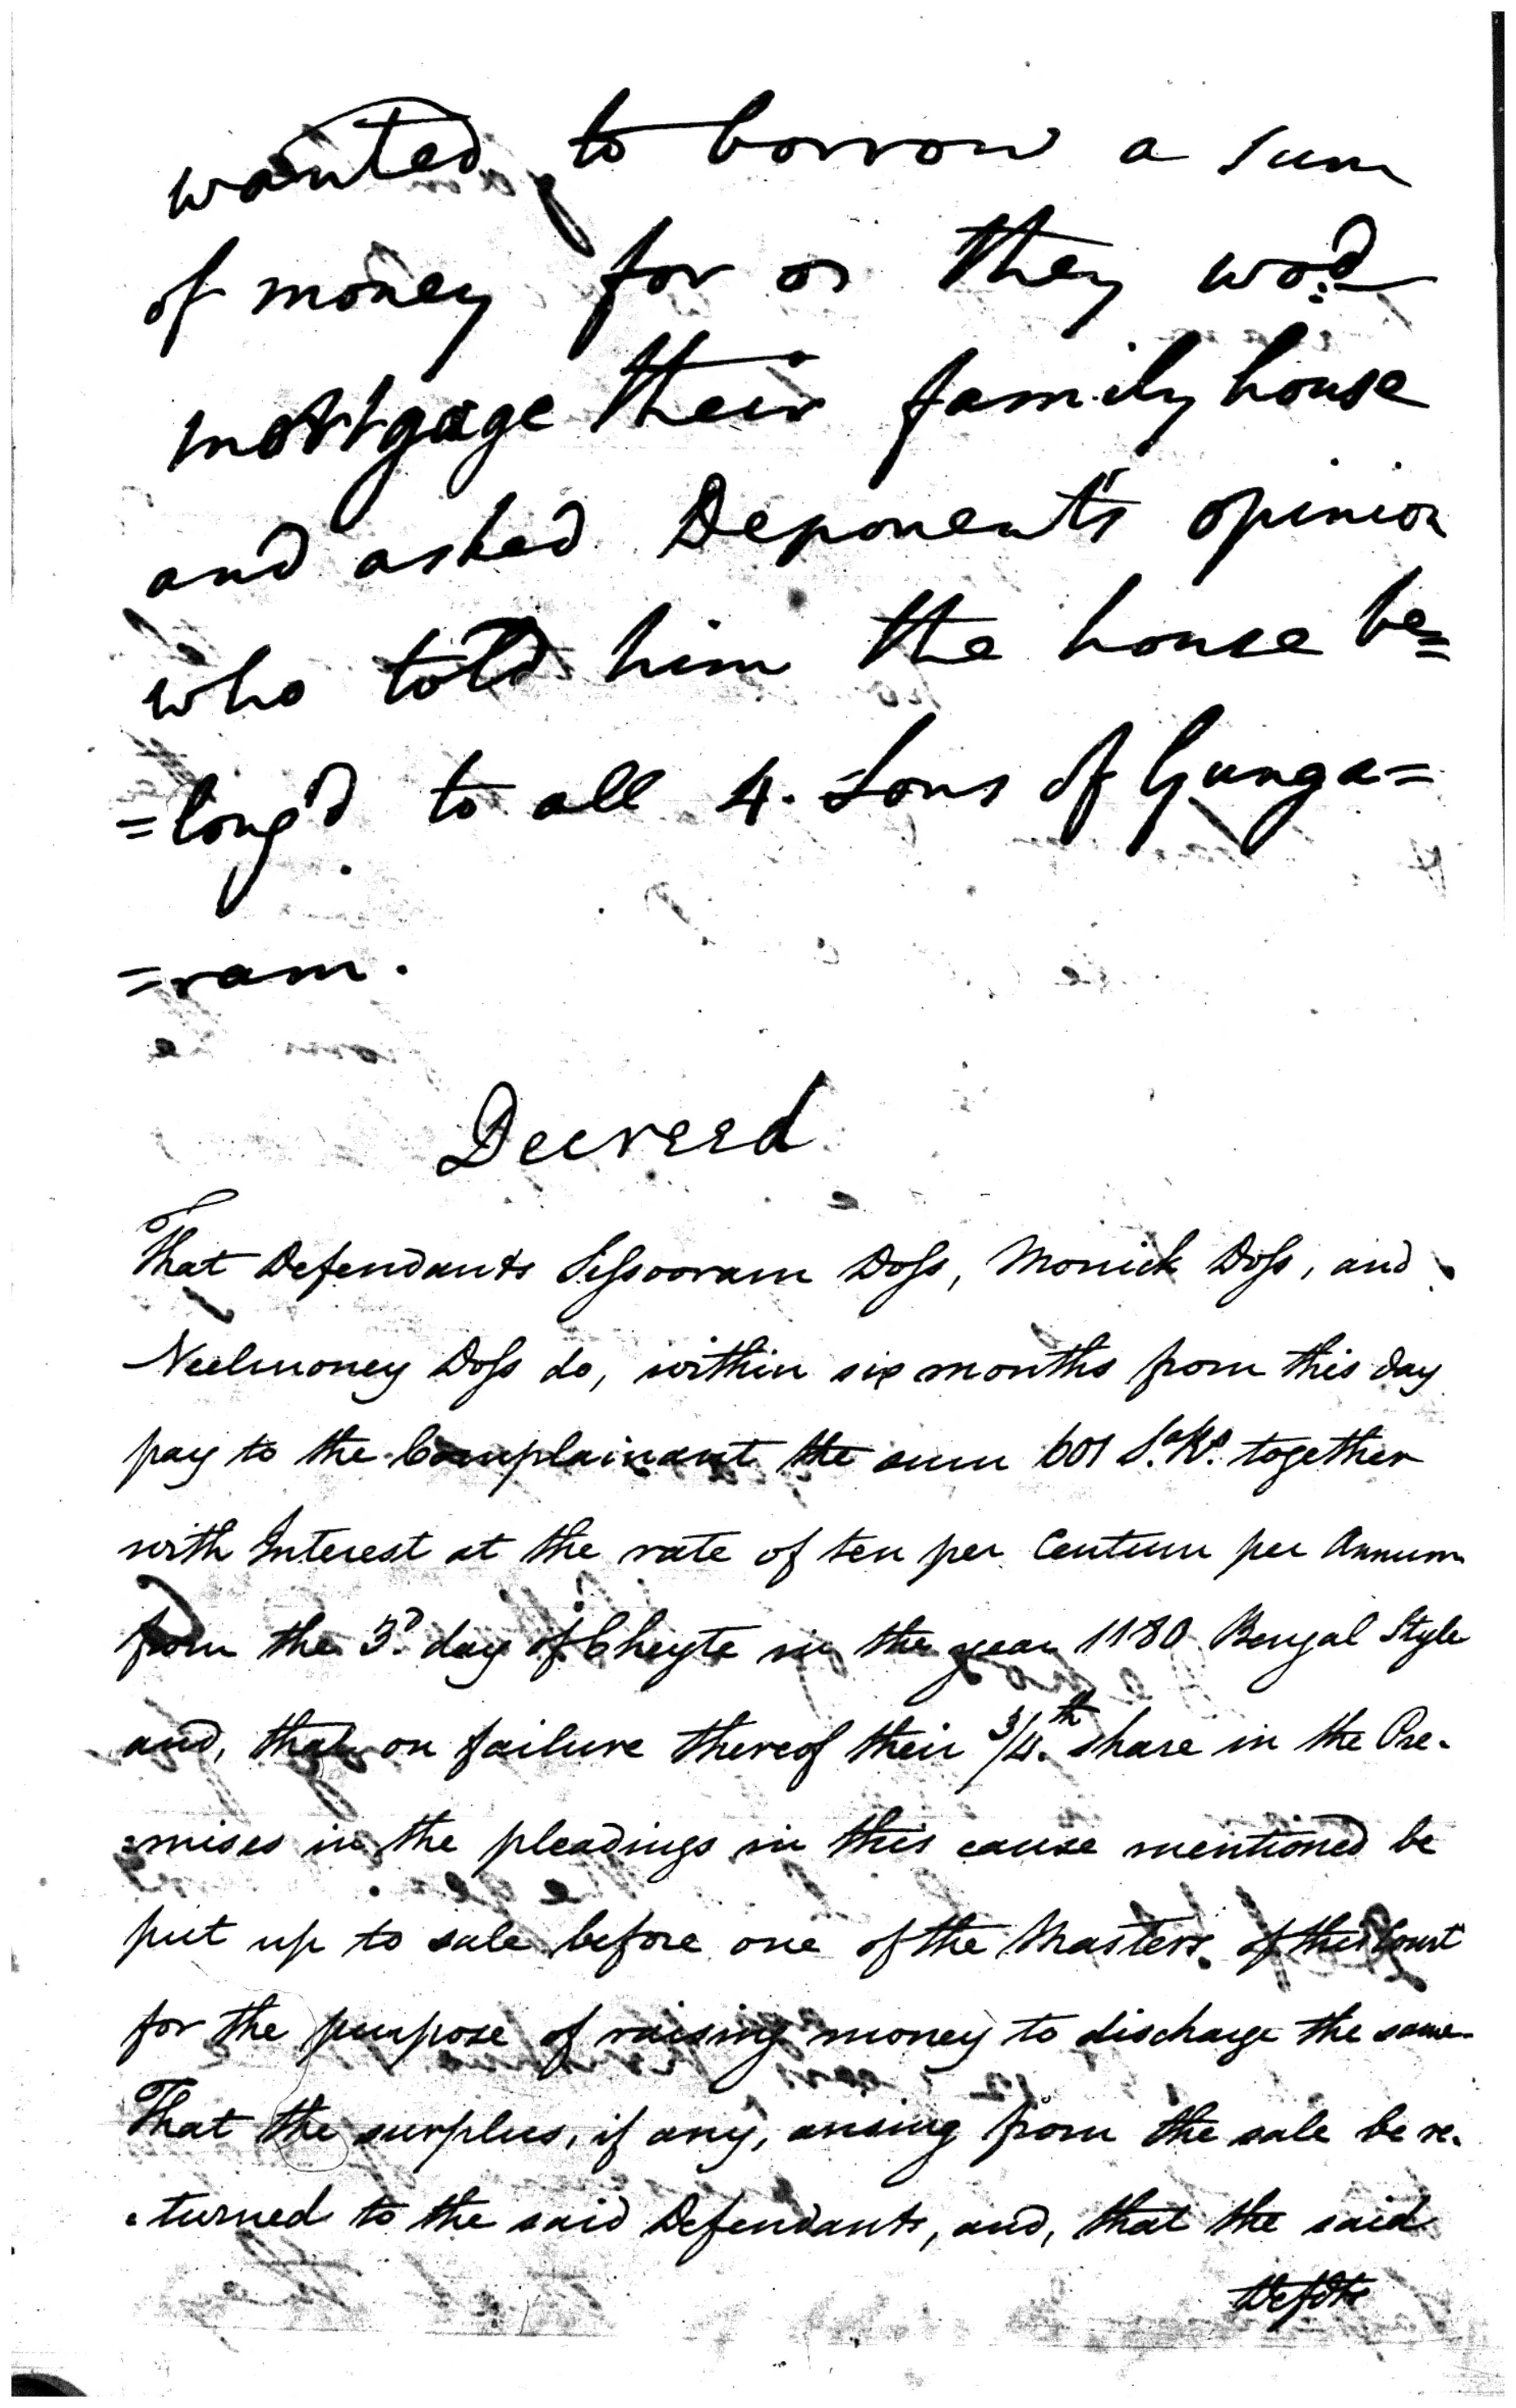 wanted to borrow a sum
of money for or they wod
mortgage their family house
and asked Deponent's opinion
who told him the house be=
=long'd to all 4. Sons of Gunga=
=ram.
Decreed
That Defendants Sissooram Doss, Monick Doss, and
Neelmoney Doss do, within six months from this day
pay to the Complainant the sum 601 Sa. Rs. together
with Interest at the rate of ten per Centum per Annum
from the 3d. day of Cheyte in the year 1180 Bengal Style
and, that on failure thereof their 3/4.th share in the Pre-
=mises in the pleadings in this cause mentioned be
put up to sale before one of the Masters of this Court
for the purpose of raising money to discharge the same.
That the surplus, if any, arising from the sale be re-
-turned to the said Defendants, and, that the said
Defdts